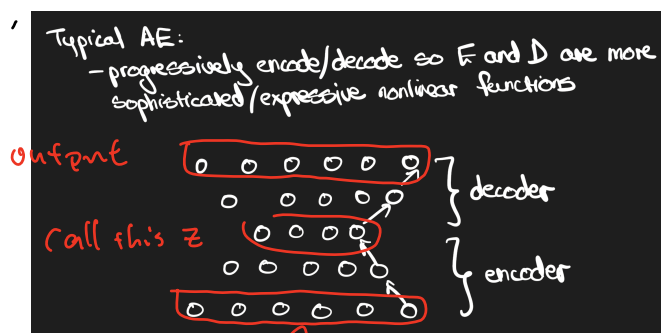 Typical AE:
- progressively encode/decode so E and D are more
sophisticated/expressive nonlinear functions
output
decoder
Call this z
encoder